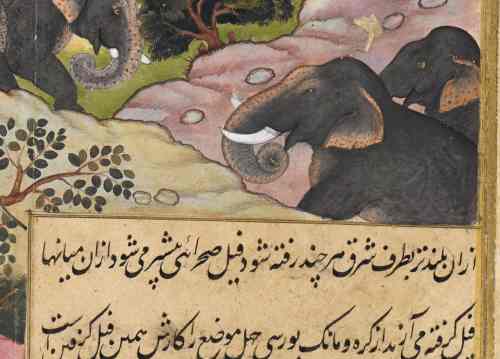 ازان بلند تر بطرف شرق هر چند رفته شود فیل صحرائی بیشتر می شود ازان میانها
فیل گرفته می آرند از کره و مانک پور سی چهل موضع را کارش همین فیل گرفتن است